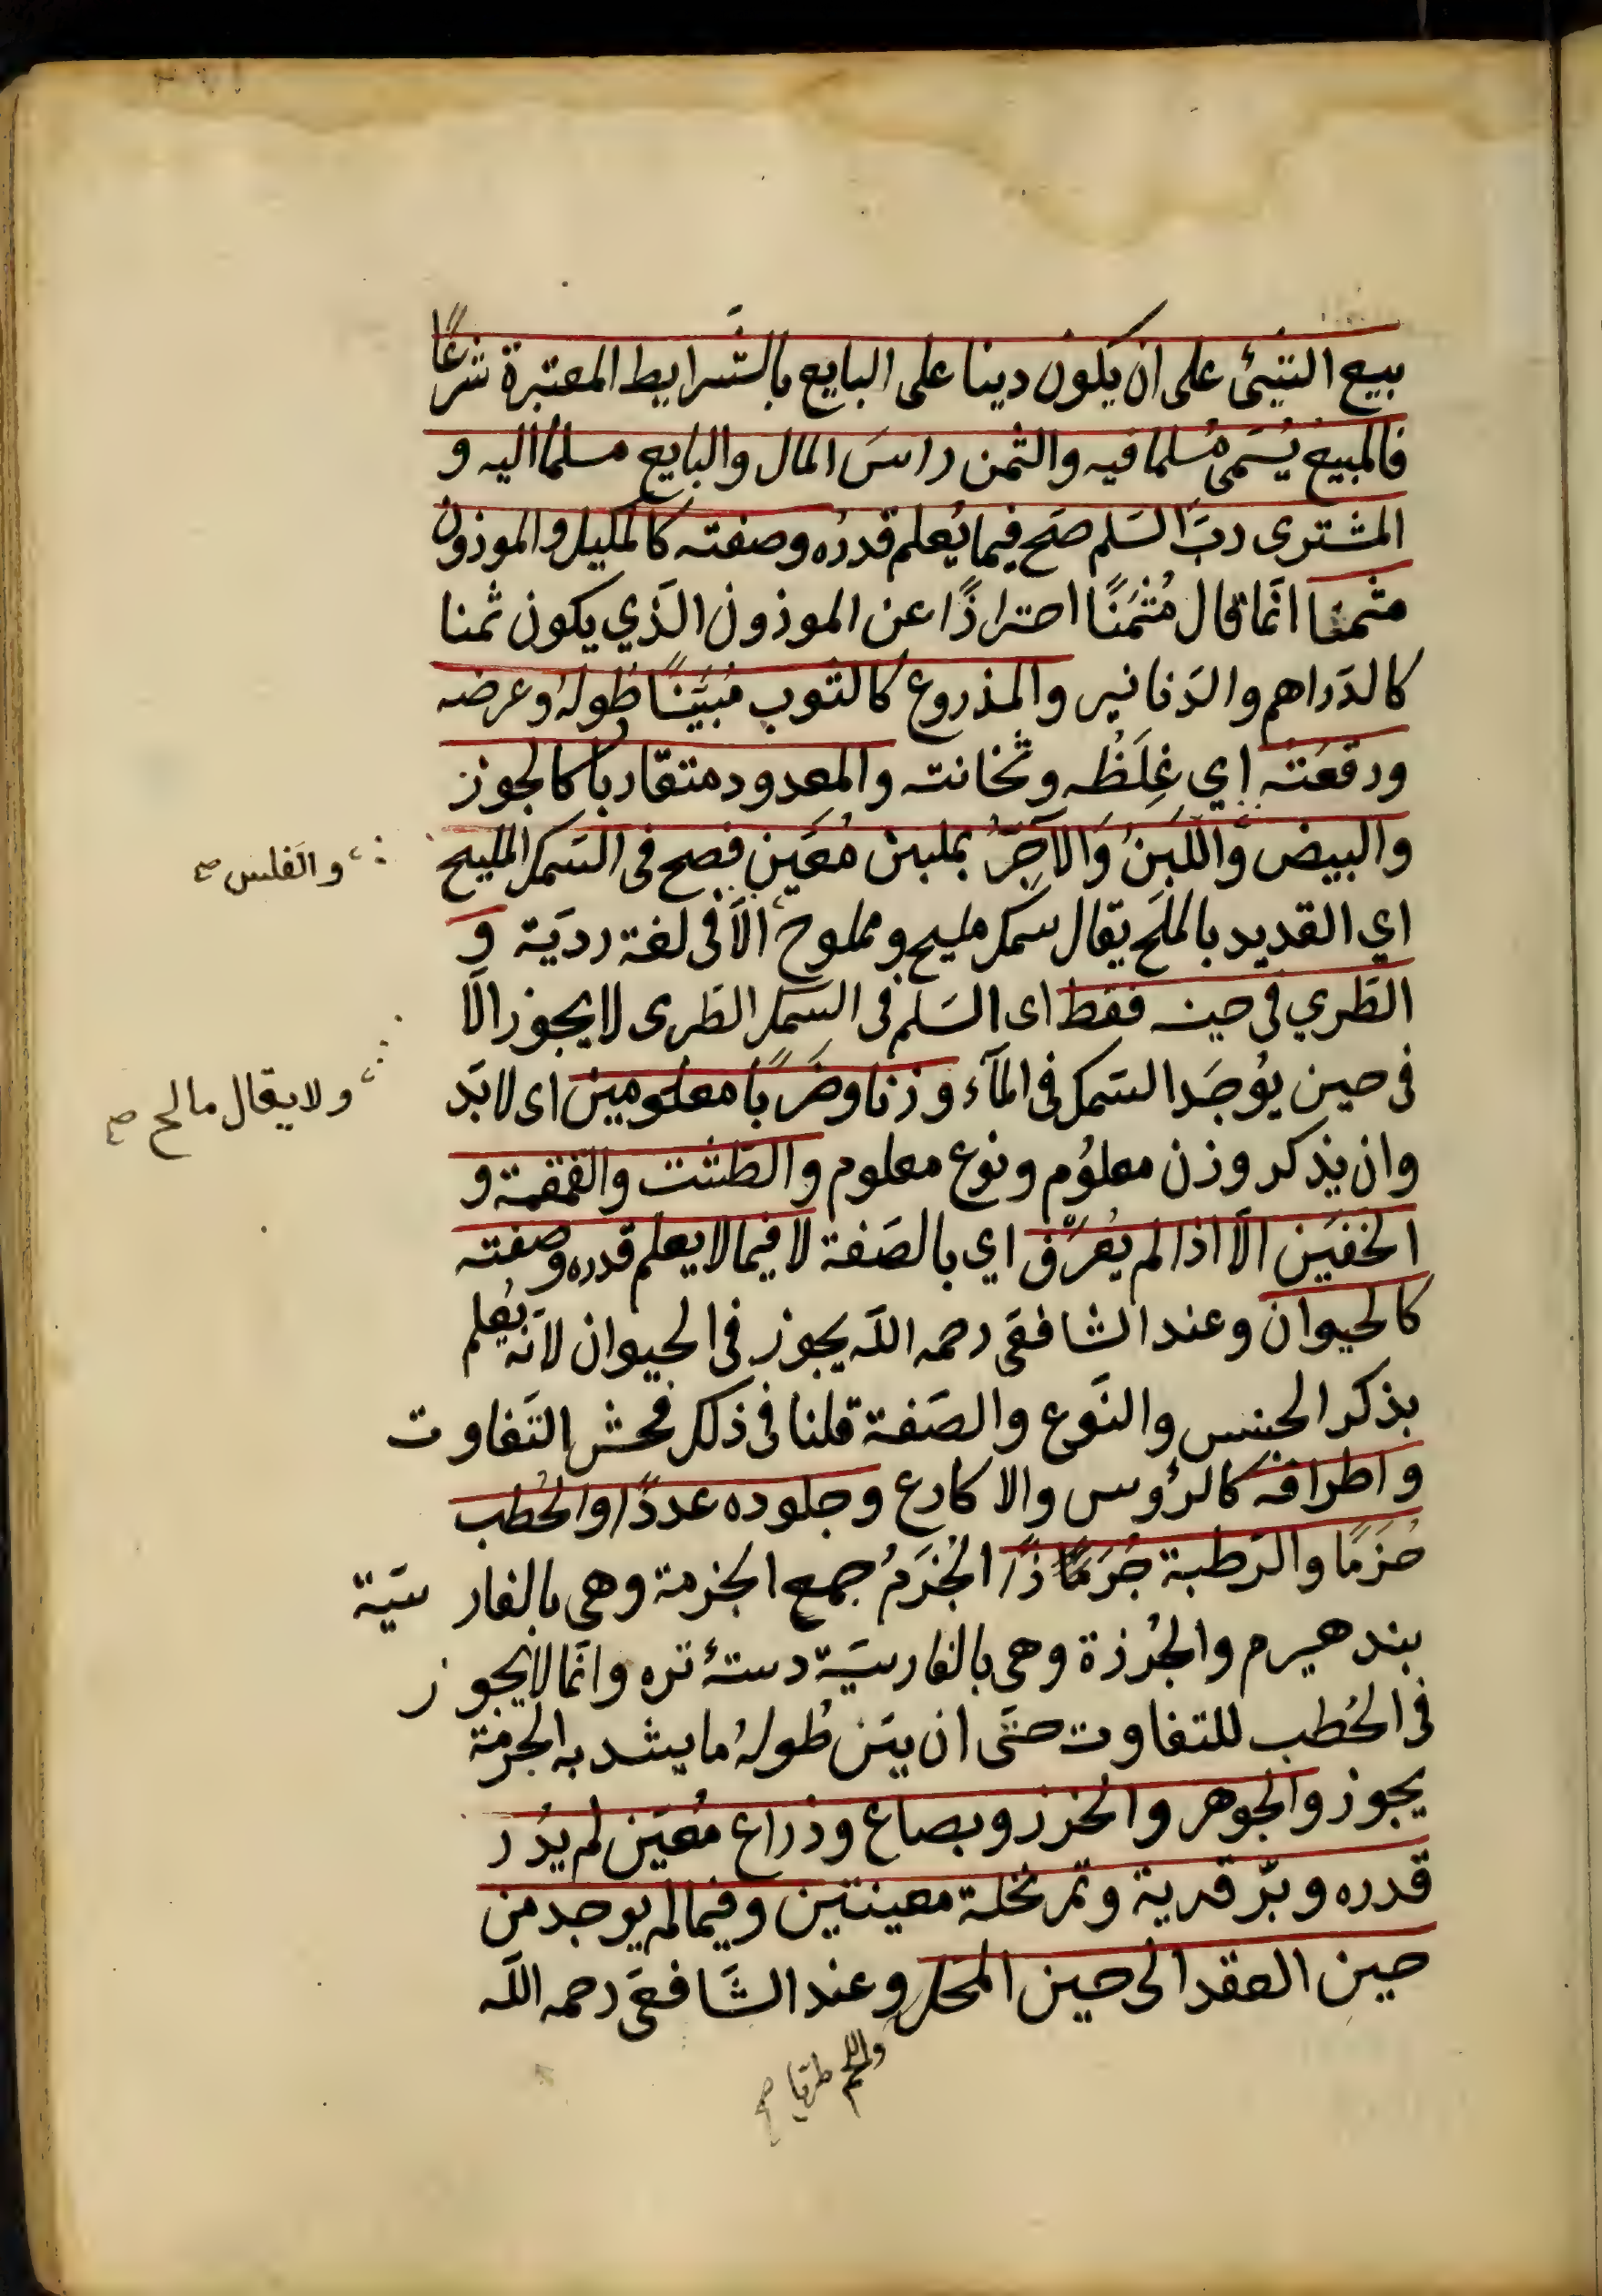 بيع الشيئ على ان يكون دينا على البايع بالشرايط المعتبرة شرعًا
فالمبيع يُسمّى مُسلما فيه والثمن راسَ المال والبايع مسلما اليه و
المشترى ربّ السّلم صحّ فيما يُعلم قدرُه وصفته كالمكيل والموزون
مثمنا انّما قال مُثمَنًا احترازًا عن الموزون الّذي يكون ثمنا
كالدّراهم والدّنانير والمذروع كالثوب مُبيَّنًا طوله وعرضه
ورقعَته اي غِلَظُه وثخانته والمعدود متقاربا كالجوز
والبيض واللّبِنُ وَالآجُرُّ بملبن مُعَين فصح فى السّمك المليح
والفلس صح
اي القديد بالملح يقال سمك مليح ومملوح الّا فى لغة رديّة و
الطّري فى حينه فقط اى السّلم فى السّمك الطّرى لا يجوز الّا
فى حين يُوجَد السّمك فى المآء وزنا وضربًا معلومين اى لا بدّ
ولا يقال مالح صح
وان يذكر وزن معلوُم ونوع معلوم والطّشت والقمقمة و
الخفّين الّا اذا لم يُعرّف اي بالصّفة لا فيما لا يعلم قدره وصفته
كالحيوان وعند الشافعى رحمه اللّه يجوز فى الحيوان لانّه يُعلم
بذكر الجنس والنّوع والصّفة قلنا فى ذلك فحش التّفاوت
واطرافه كالرؤوس والاكارع وجلوده عددًا والحُطب
حُزَمًا والرّطبة جُرَزًا الحُزَمُ جمع الحزمة وهى بالفارسيّة
بند هيزم والجُرزة وهى بالفارسيّة دستهٔ تره وانّما لا يجوز
فى الحُطب للتفاوت حتّى ان بيّن طُولهُ ما يشد به الحزمة
يجوز والجوهر والخرز وبصاع وذراع مُعيّن لم يدُر
قدره وبرّ قرية وتمر نخلة معينتين وفيما لم يوجد من
حين العقد الى حين المحل وعند الشّافعى رحمه اللّه
واللحم طريا صح